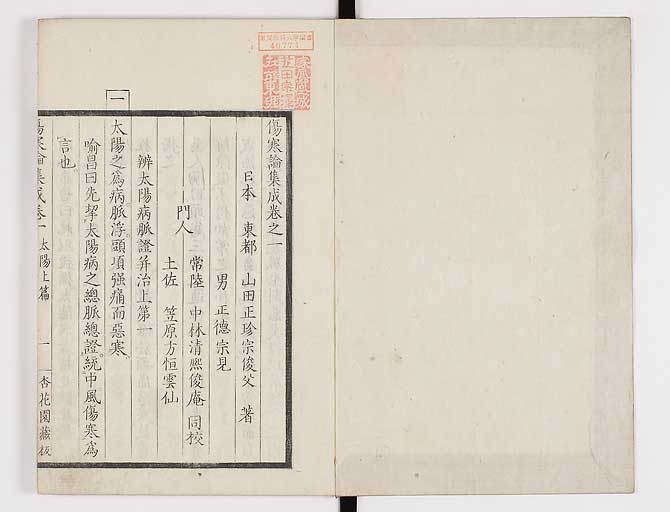 傷寒論集成卷之一
日本 東都 山田正珍宗俊父 著
男 正德宗見
門人
常陸 中林清熙俊庵 同校
土佐 笠原方恒雲仙
辨太陽病脈證并治上第一
一
太陽之爲病脈浮頭項强痛而惡寒
喻昌曰先挈太陽病之總脈總證統中風傷寒爲
言也
傷寒論集成卷一 太陽上篇 一 杏花園藏板
40775